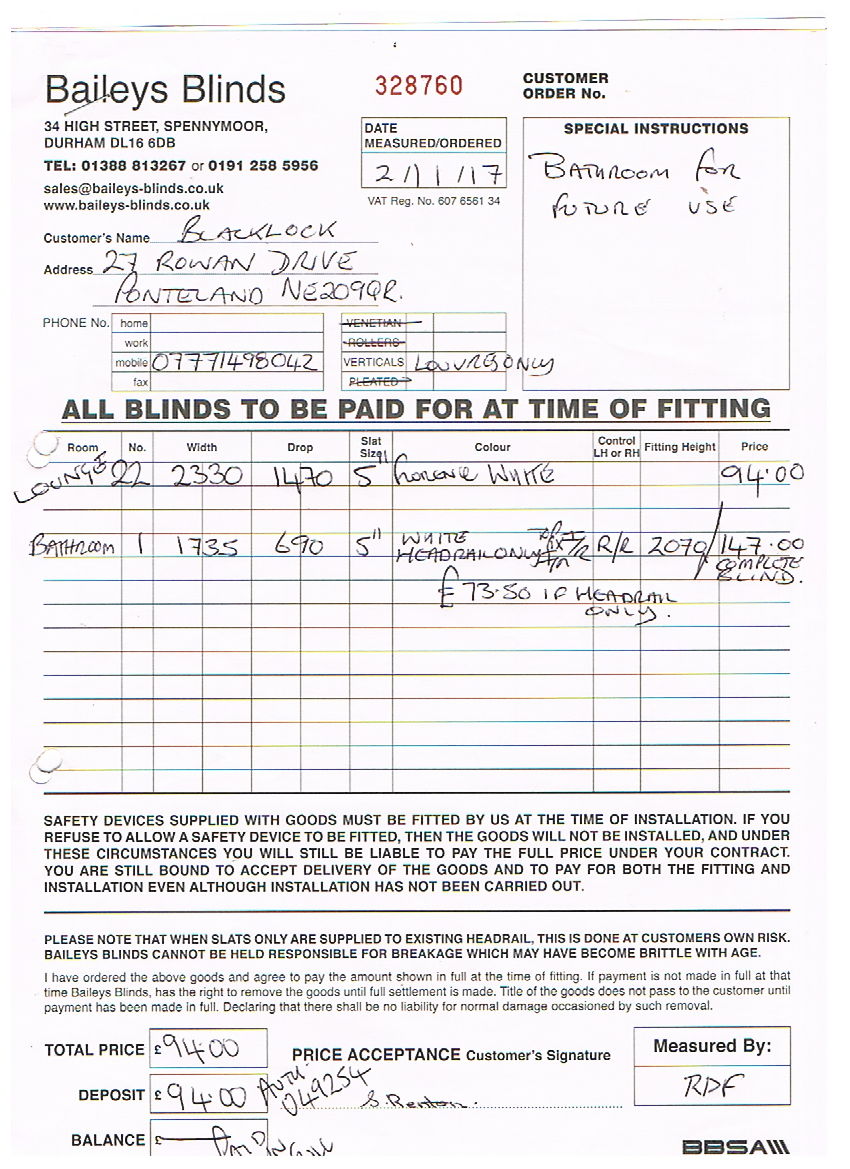 Baileys Blinds
328760
CUSTOMER
ORDER No.
34 HIGH STREET, SPENNYMOOR,
DURHAM DL16 6DB
TEL: 01388 813267 or 0191 258 5956
sales@baileys-blinds.co.uk
www.baileys-blinds.co.uk
DATE
MEASURED/ORDERED
2/1/17
VAT Reg. No. 607 6561 34
SPECIAL INSTRUCTIONS
BATHROOM for
FUTURE USE
Customer's Name BLACKLOCK
Address 27 ROWAN DRIVE
PONTELAND NE209QR.
PHONE No. home
work
mobile 07771498042
fax
VENETIAN
ROLLERS
VERTICALS LOUVRES ONLY
PLEATED
ALL BLINDS TO BE PAID FOR AT TIME OF FITTING
Room No. Width Drop Slat Size Colour Control LH or RH Fitting Height Price
LOUNGE 22 2330 1470 5" Florence WHITE 94.00
BATHROOM 1 1735 690 5" WHITE HEADRAIL ONLY R/R 2070 147.00
COMPLETE
BLIND.
£73.50 IF HEADRAIL
ONLY.
SAFETY DEVICES SUPPLIED WITH GOODS MUST BE FITTED BY US AT THE TIME OF INSTALLATION. IF YOU
REFUSE TO ALLOW A SAFETY DEVICE TO BE FITTED, THEN THE GOODS WILL NOT BE INSTALLED, AND UNDER
THESE CIRCUMSTANCES YOU WILL STILL BE LIABLE TO PAY THE FULL PRICE UNDER YOUR CONTRACT.
YOU ARE STILL BOUND TO ACCEPT DELIVERY OF THE GOODS AND TO PAY FOR BOTH THE FITTING AND
INSTALLATION EVEN ALTHOUGH INSTALLATION HAS NOT BEEN CARRIED OUT.
PLEASE NOTE THAT WHEN SLATS ONLY ARE SUPPLIED TO EXISTING HEADRAIL, THIS IS DONE AT CUSTOMERS OWN RISK.
BAILEYS BLINDS CANNOT BE HELD RESPONSIBLE FOR BREAKAGE WHICH MAY HAVE BECOME BRITTLE WITH AGE.
I have ordered the above goods and agree to pay the amount shown in full at the time of fitting. If payment is not made in full at that
time Baileys Blinds, has the right to remove the goods until full settlement is made. Title of the goods does not pass to the customer until
payment has been made in full. Declaring that there shall be no liability for normal damage occasioned by such removal.
TOTAL PRICE £94.00
PRICE ACCEPTANCE Customer's Signature
Measured By:
RDF
DEPOSIT £94.00
AUTH.
049254
S Renton.
BALANCE £
PAID IN FULL
BBSA